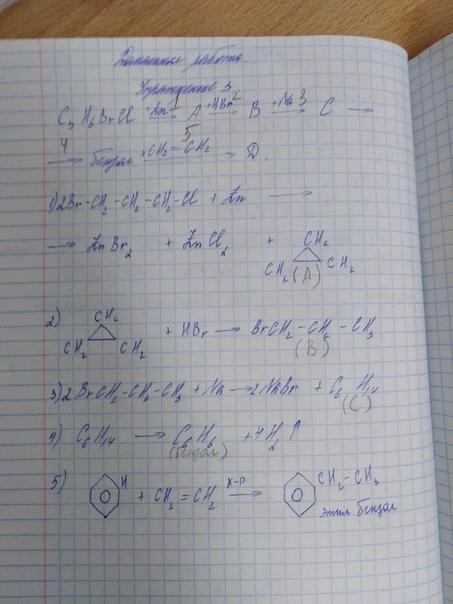 Домашняя работа.
Упражнение 3
C₃H₆BrCl +Zn 1→ A +HBr 2→ B +Na 3→ C →
4→ бензол 5 +CH₂=CH₂→ D.
1) 2Br-CH₂-CH₂-CH₂-Cl + Zn →
→ ZnBr₂ + ZnCl₂ + CH₂ CH₂ CH₂ (A)
2) CH₂ CH₂ CH₂ + HBr → BrCH₂-CH₂-CH₃ (B)
3) 2BrCH₂-CH₂-CH₃ + Na → 2NaBr + C₆H₁₄ (C)
4) C₆H₁₄ → C₆H₆ (бензол) + 4H₂↑
5) H + CH₂=CH₂ к-р→ CH₂-CH₃
этил бензол